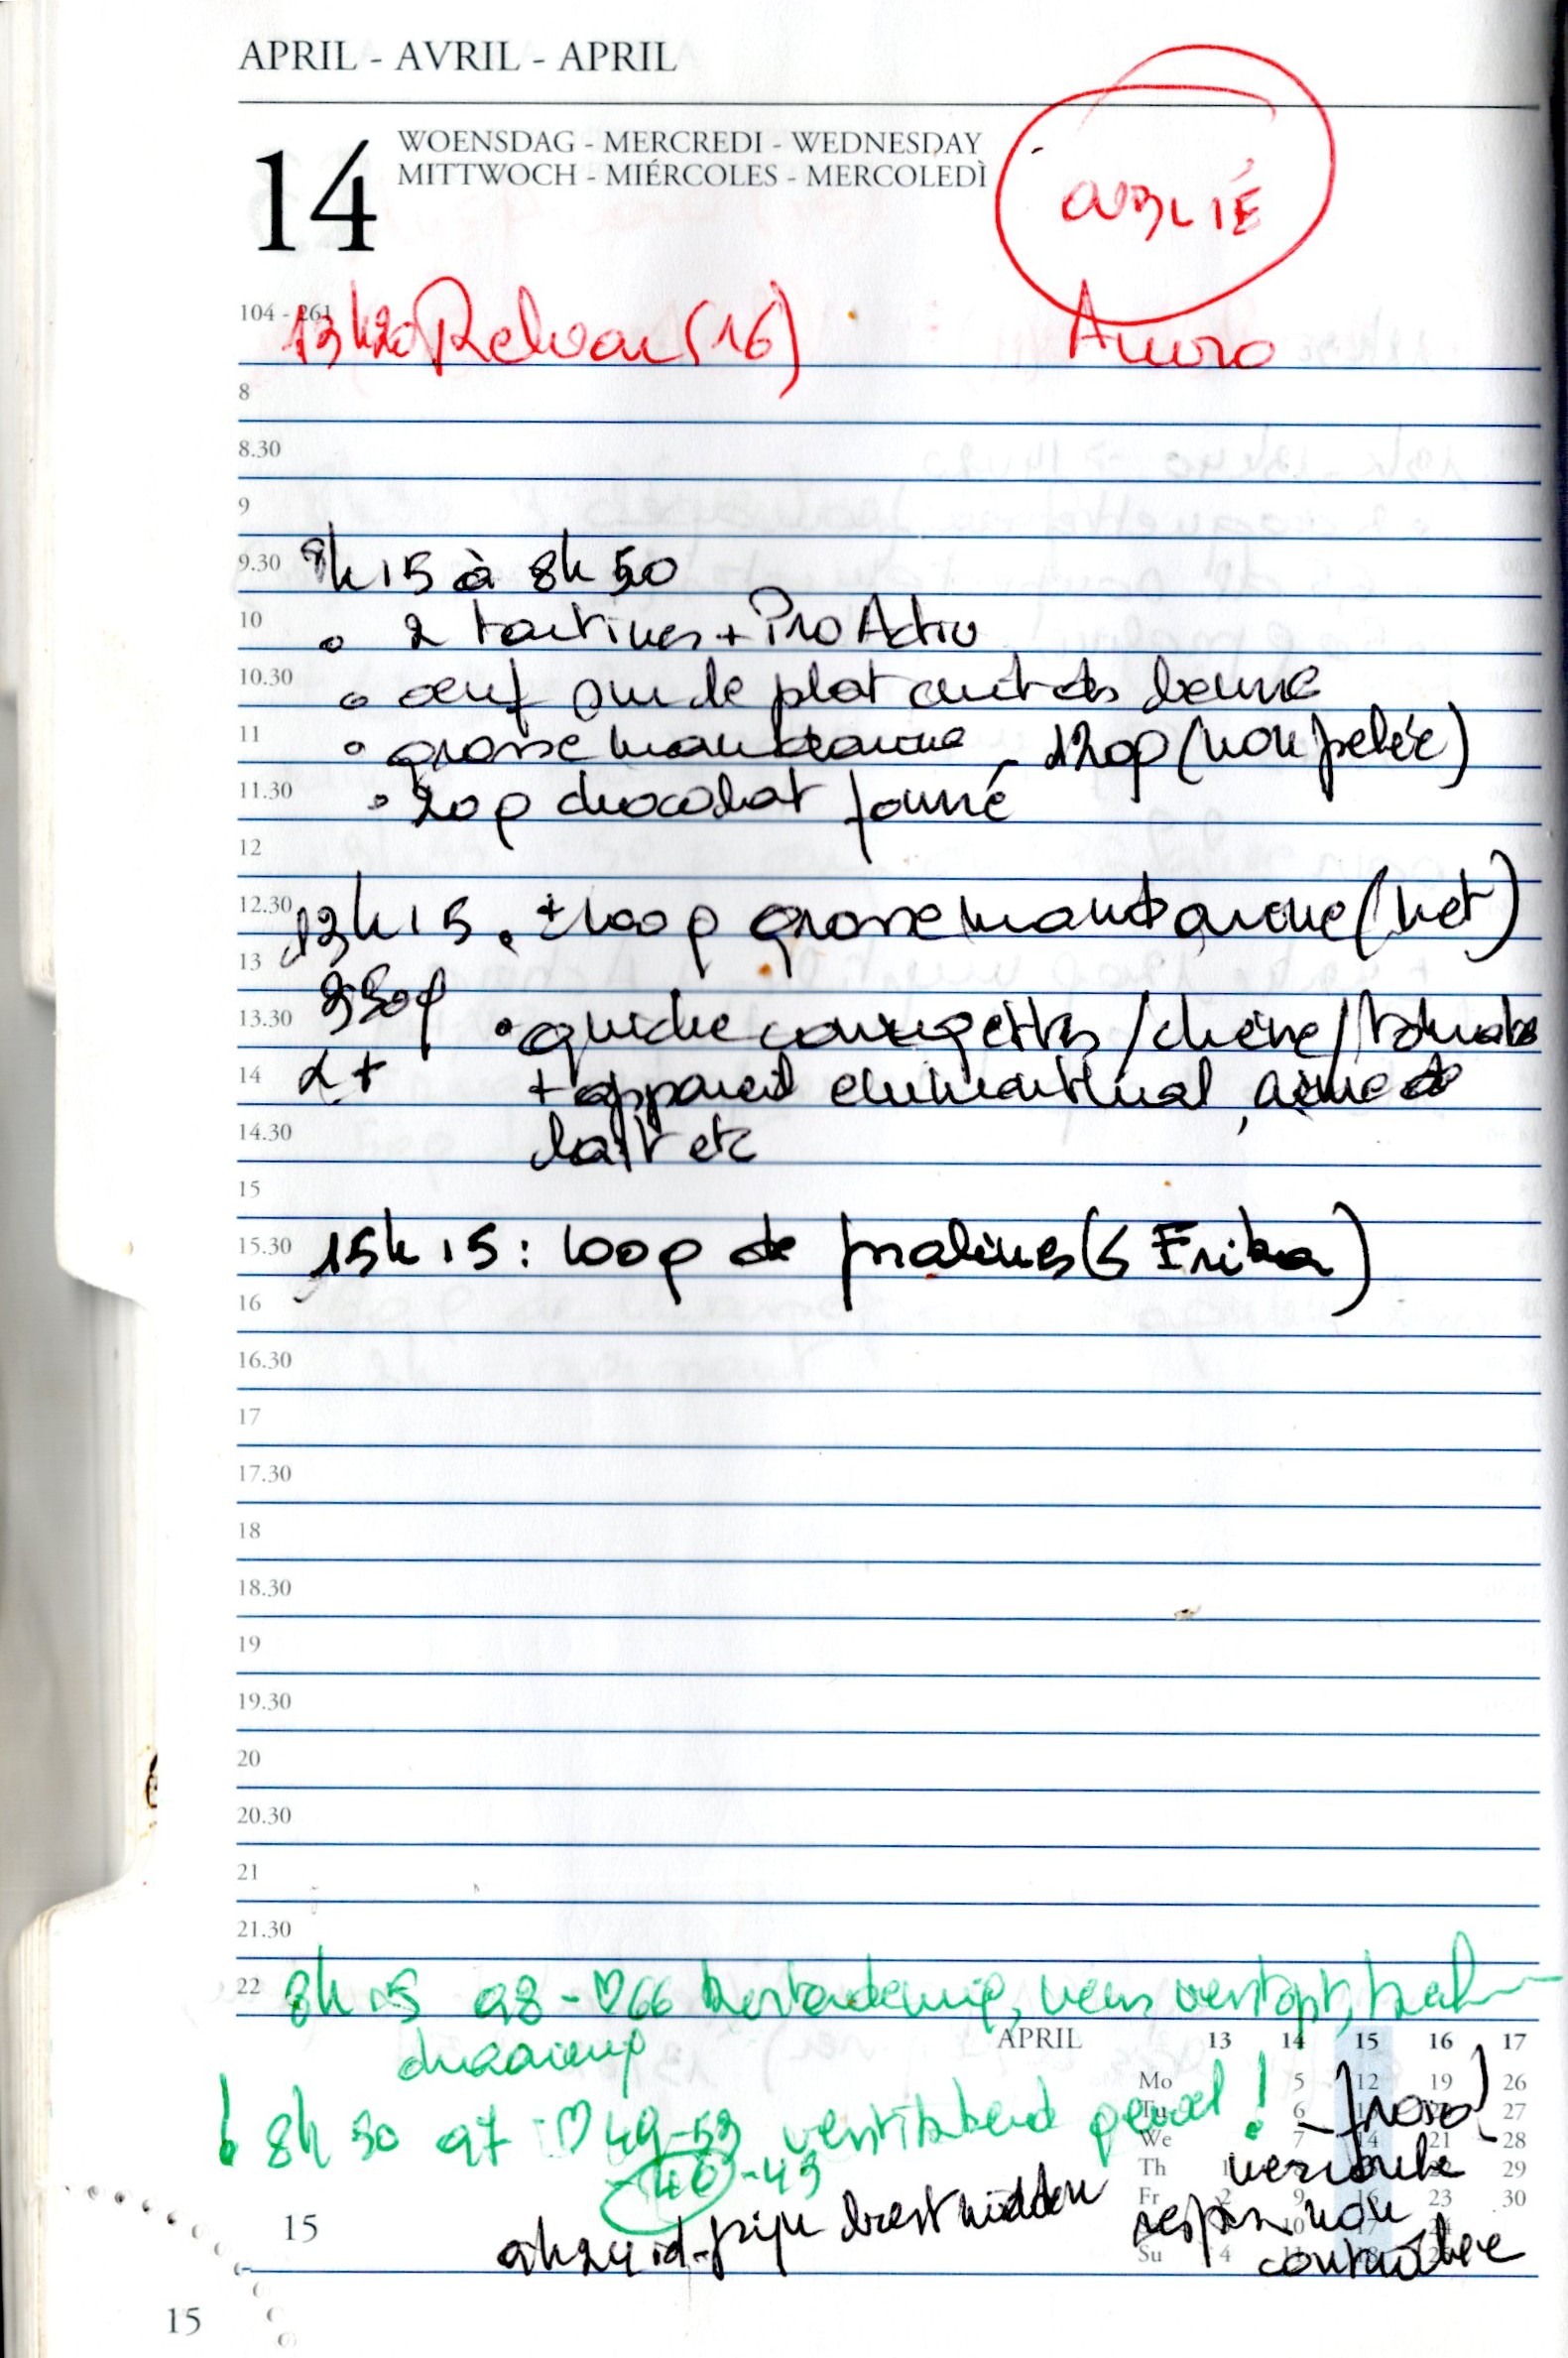 APRIL - AVRIL - APRIL
14
WOENSDAG - MERCREDI - WEDNESDAY
MITTWOCH - MIÉRCOLES - MERCOLEDÌ
OUBLIÉ
104 - 261
13h20 (16)
8
8.30
9
9.30 8h15 à 8h50
10 2 tartines + ProActiv
10.30 oeuf sur le plat cuit ds beurre
11 grosse mandarine 120g (non pelée)
11.30 20g chocolat fourré
12
12.30 13h15 + 100g grosse mandarine (net)
13 250g
13.30 quiche courgettes / chèvre / tomate
14 + appareil emmenthal, crème de
14.30 lait etc
15
15.30 15h15 : 100g de pralines (5 Erika)
16
16.30
17
17.30
18
18.30
19
19.30
20
20.30
21
21.30
22 8h15 98 - ♡66 neus verstopt,
8h50 97 ♡49-53
46 -43
APRIL 13 14 15 16 17
Mo 5 12 19 26
Tu 6 13 27
We 7 14 21 28
Th 1 8 29
Fr 2 9 16 23 30
10 17
Su 4 11 18
9h24 id - pijn borst midden
non
contrôlée
15
15